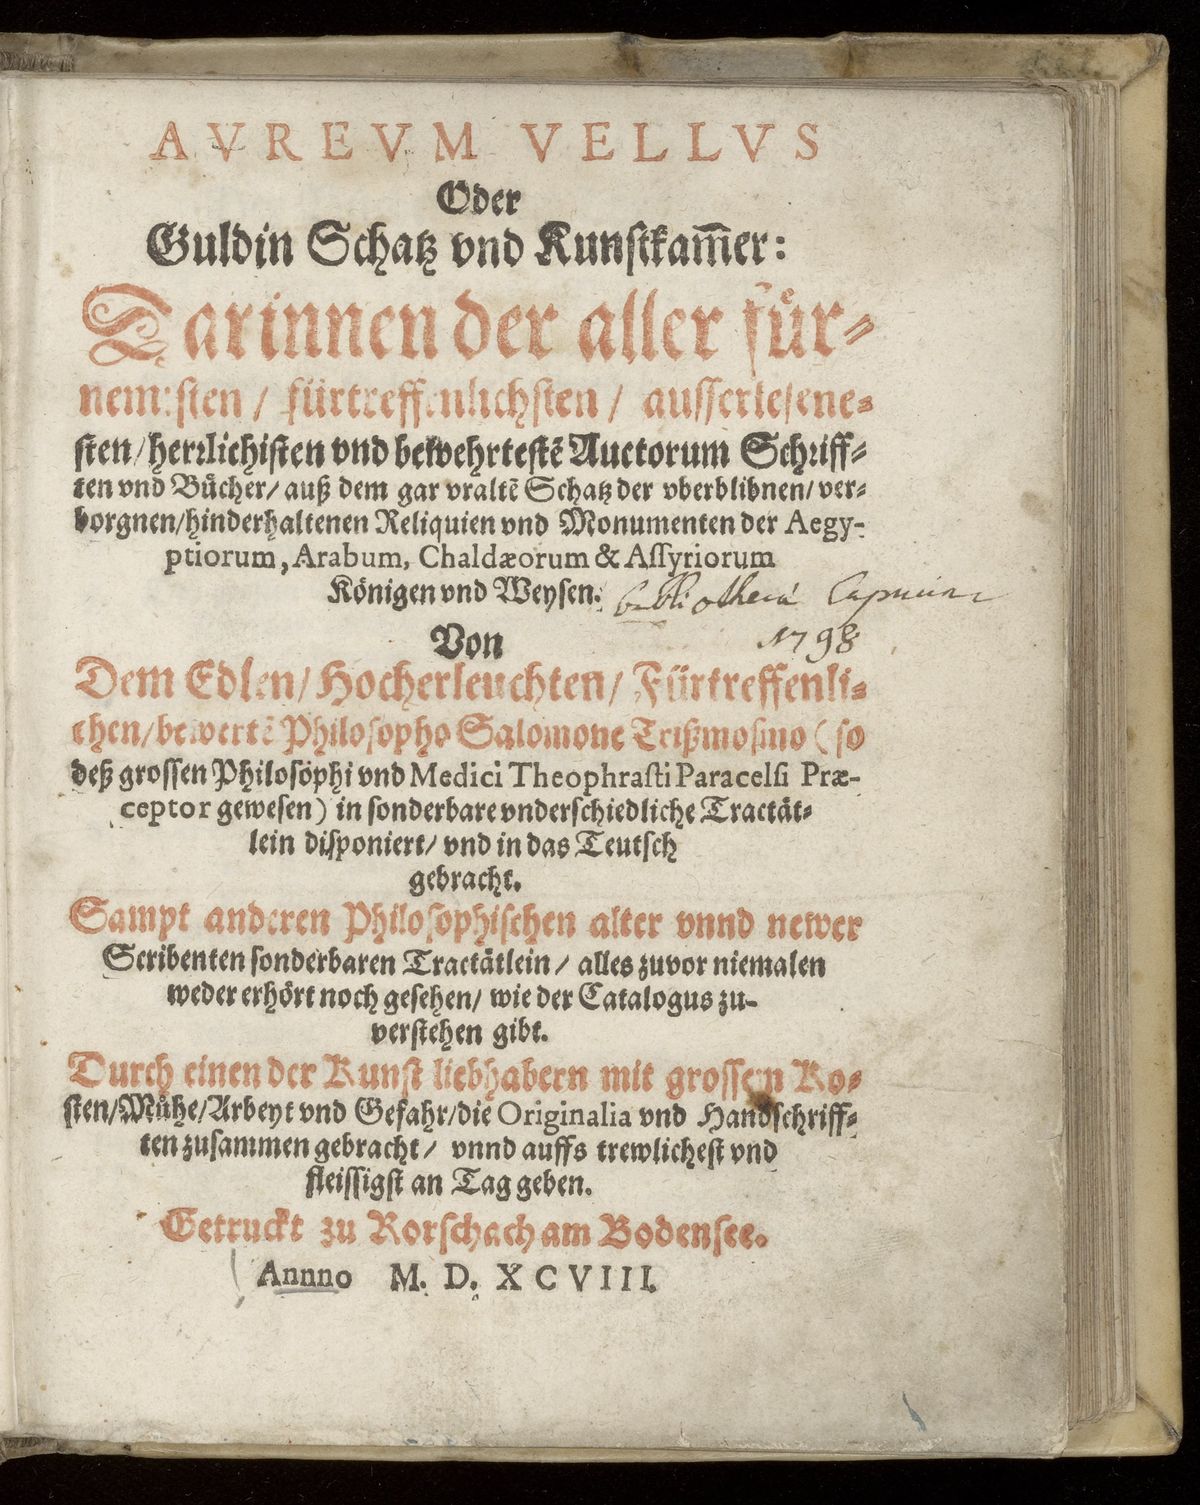 AVREVM VELLVS
Oder
Guldin Schatz vnd Kunstkam̅er:
Darinnen der aller fuͤr-
nemisten / fürtreffenlichsten / ausserlesene-
sten / herrlichisten vnd bewehrtestẽ Auctorum Schriff-
ten vnd Buͤcher / auß dem gar vraltẽ Schatz der vberblibnen / ver-
borgnen / hinderhaltenen Reliquien vnd Monumenten der Aegy-
ptiorum, Arabum, Chaldæorum & Aſſyriorum
Königen vnd Weysen.
Bibliothecæ
1798
Von
Dem Edlen / Hocherleuchten / Fürtreffenli-
chen / bewertẽ Philosopho Salomone Trißmosino (so
deß grossen Philosophi vnd Medici Theophraſti Paracelſi Præ-
ceptor gewesen) in sonderbare vnderschiedliche Tractät-
lein disponiert / vnd in das Teutsch
gebracht.
Sampt anderen Philosophischen alter vnnd newer
Scribenten sonderbaren Tractätlein / alles zuvor niemalen
weder erhört noch gesehen / wie der Catalogus zu-
verstehen gibt.
Durch einen der Kunst liebhabern mit grossem Ko-
sten / Muͤhe / Arbeyt vnd Gefahr / die Originalia vnd Handschriff-
ten zusammen gebracht / vnnd auffs trewlichest vnd
fleissigst an Tag geben.
Getruckt zu Rorschach am Bodensee.
Annno M. D. XCVIII.